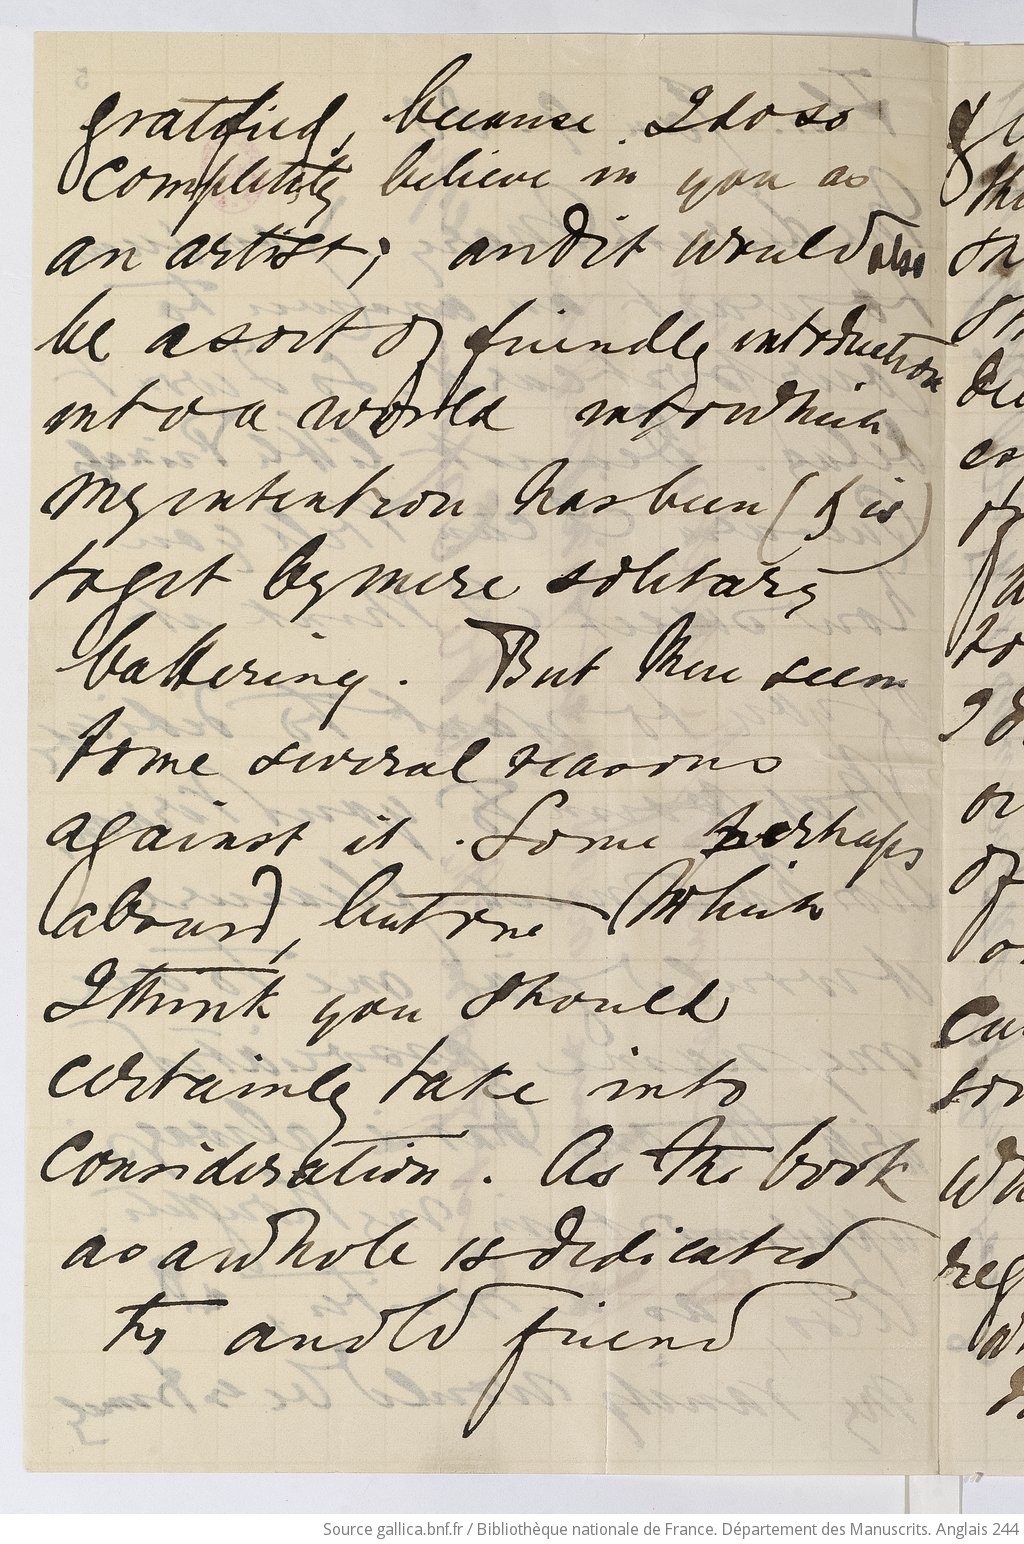 gratified, because I do so
completely believe in you as
an artist; and it would also
be a sort of friendly introduction
into a world into which
my intention has been (& is)
to get by mere solitary
battering. But there seem
to me several reasons
against it. Some perhaps
(absurd), but one (which
I think you should
certainly take into
consideration. As the book
as a whole is dedicated
to an old friend
Source gallica.bnf.fr / Bibliothèque nationale de France. Département des Manuscrits. Anglais 244